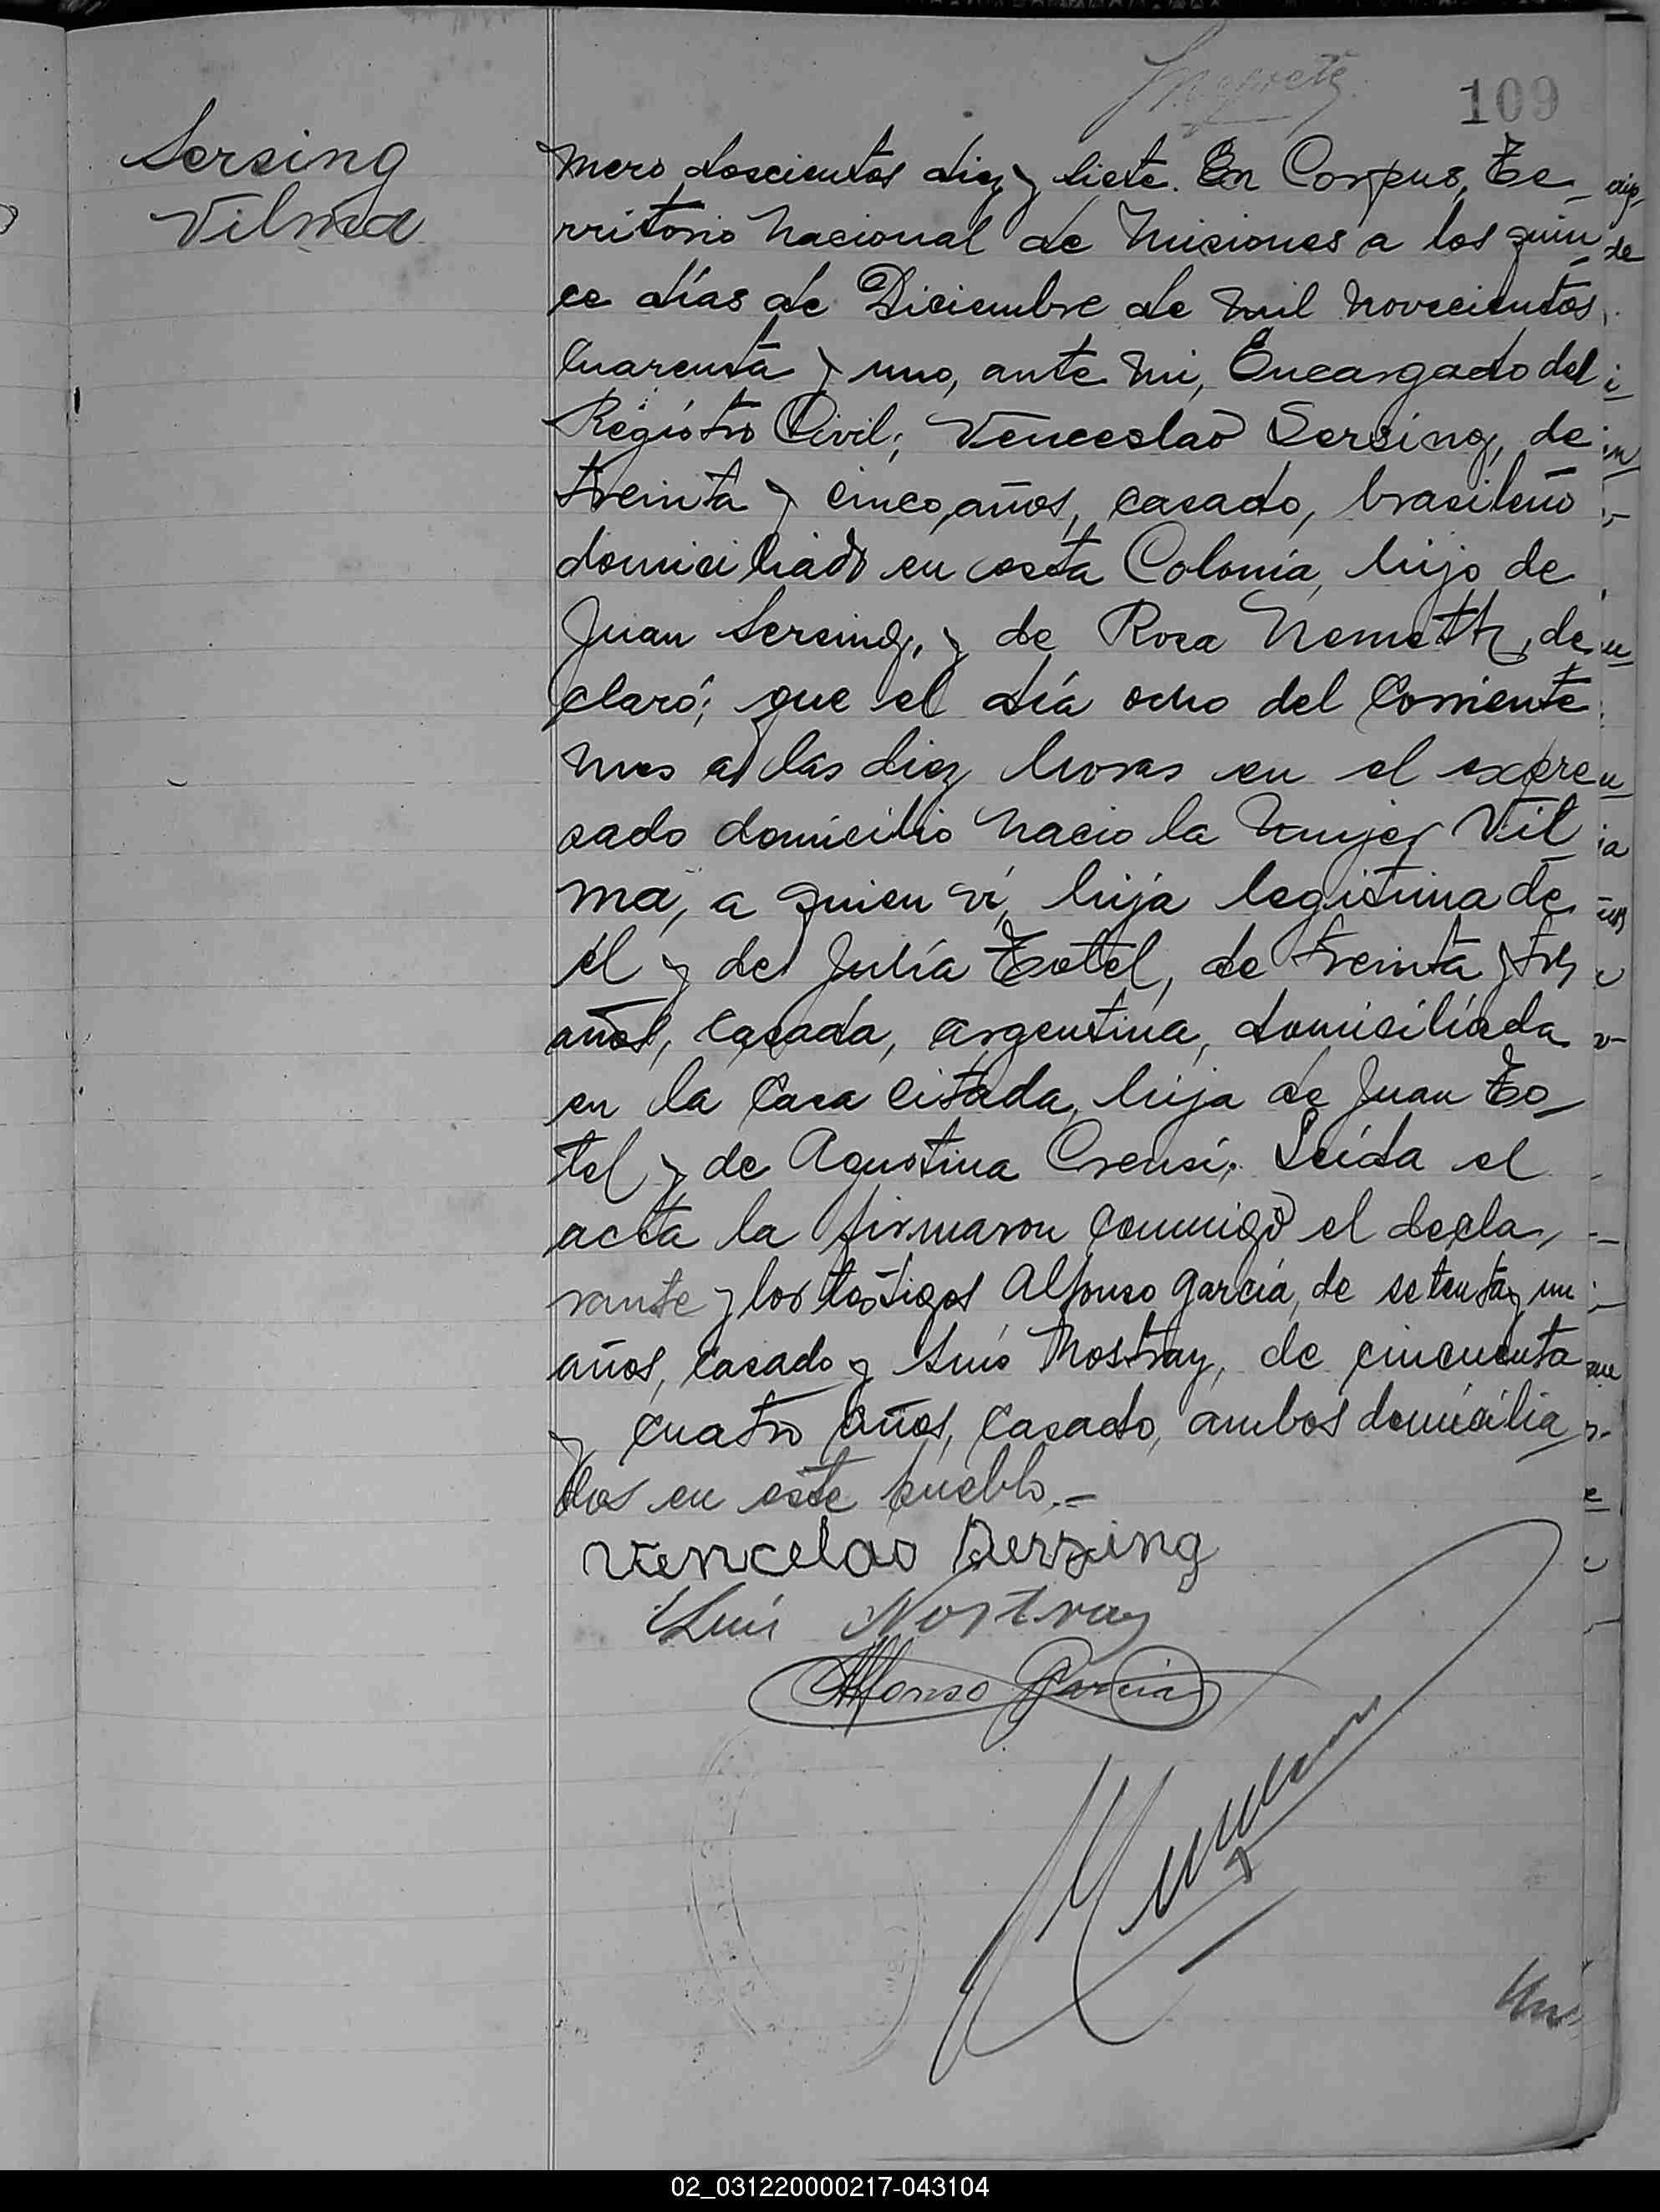 109
Sersing
Vilma
mero doscientos diez y siete. En Corpus, Te-
rritorio Nacional de Misiones a los quin-
ce días de Diciembre de mil novecientos
cuarenta y uno, ante mi, Encargado del
Registro Civil; Venceslao Sersing, de
treinta y cinco años, casado, brasileño
domiciliado en esta Colonia, hijo de
Juan Sersing, y de Rosa Nemeth, de-
claró; que el día ocho del corriente
mes a las diez horas en el expre-
sado domicilio nacio la mujer Vil-
ma, a quien ví, hija legitima de
él y de Julía Totel, de treinta y tres
años, casada, argentina, domiciliada
en la casa citada, hija de Juan To-
tel y de Agustina Crensi. Leída el
acta la firmaron conmigo el decla-
rante y los testigos Alfonso García, de setenta y un
años, casado y Luis Nostray, de cincuenta
y cuatro años, casado, ambos domicilia-
dos en este pueblo.-
Vencelao Sersing
Luis Nostray
Alfonso Garcia
02_031220000217-043104